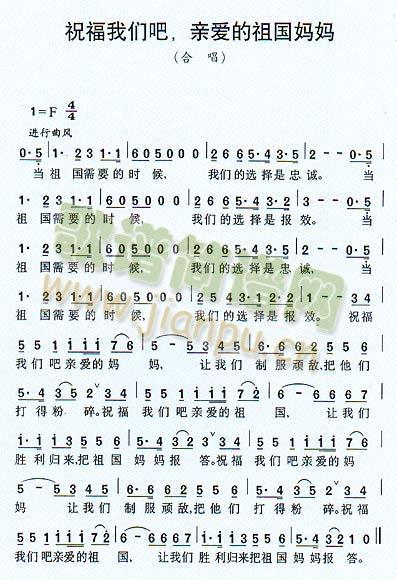 祝福我们吧,亲爱的祖国妈妈
(合 唱)
1=F 4/4
进行曲风
0·5 | 1· 2 3 1·1 | 6 0 5 0 0 0 | 2 6 6 5·4 3·5 | 2 - - 0·5 |
当 祖 国需要的 时 候, 我们的选择是 忠 诚。 当
1· 2 3 1·1 | 6 0 5 0 0 0 | 2 6 6 5·4 3·2 | 1 - - 0·5 |
祖 国需要的 时 候, 我们的选择是 报 效。 当
1· 2 3 1·1 | 6 0 5 0 0 0 | 2 6 6 5·4 3·5 | 2 - - 0·5 |
祖 国需要的 时 候, 我们的选择是 忠 诚, 当
1· 2 3 1·1 | 6 0 5 0 0 0 | 2 5 4 3·1 2 2 | 1 - 3 4 |
祖 国需要的 时 候, 我们的选择是 报 效。 祝福
5 5 1 1 1 1 7 6 | 5 - 5 3 4 | 5 5 1 1 1 1 2 3 |
我们吧亲爱的妈 妈, 让我们 制服顽敌,把他们
5· 4 3 2 3 4 | 5 5 1 1 1 1 7 6 | 6 - 6 6 6 7 |
打得粉 碎。祝福 我们吧亲爱的祖 国, 让我们
1· 1 1 1 3 5 3 | 2· 2 6 7 1 3 4 | 5 5 1 1 1 1 7 6 |
胜利归来,把祖国 妈妈报 答。祝福 我们吧亲爱的妈
5 - 5 3 4 | 5 5 1 1 1 1 2 3 | 5· 4 3 2 3 4 |
妈 让我们 制服顽敌,把他们 打得粉 碎。祝福
5 5 1 1 1 1 7 6 | 6 - 6 6 6 7 | 1· 1 1 1 3 5 3 | 2· 2 6 7 1 0 ‖
我们吧亲爱的祖 国, 让我们 胜利归来把祖国 妈妈报 答。
www.jianpu.cn